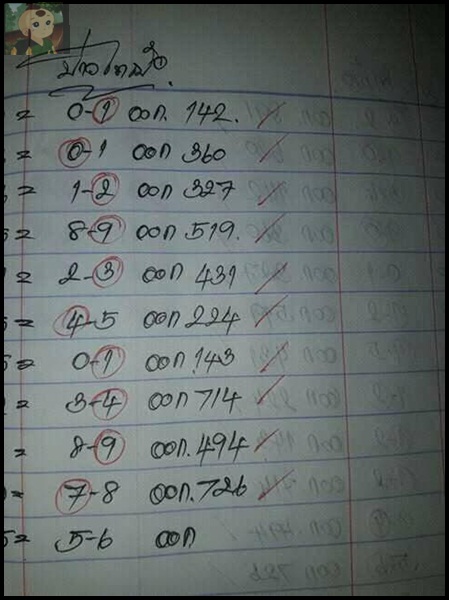 = 0-1 ออก. 142.
= 0-1 ออก 360
= 1-2 ออก 327
= 8-9 ออก 519.
= 2-3 ออก 431
= 4-5 ออก 224
= 0-1 ออก.143
= 3-4 ออก 714
= 8-9 ออก.494
= 7-8 ออก.726
= 5-6 ออก